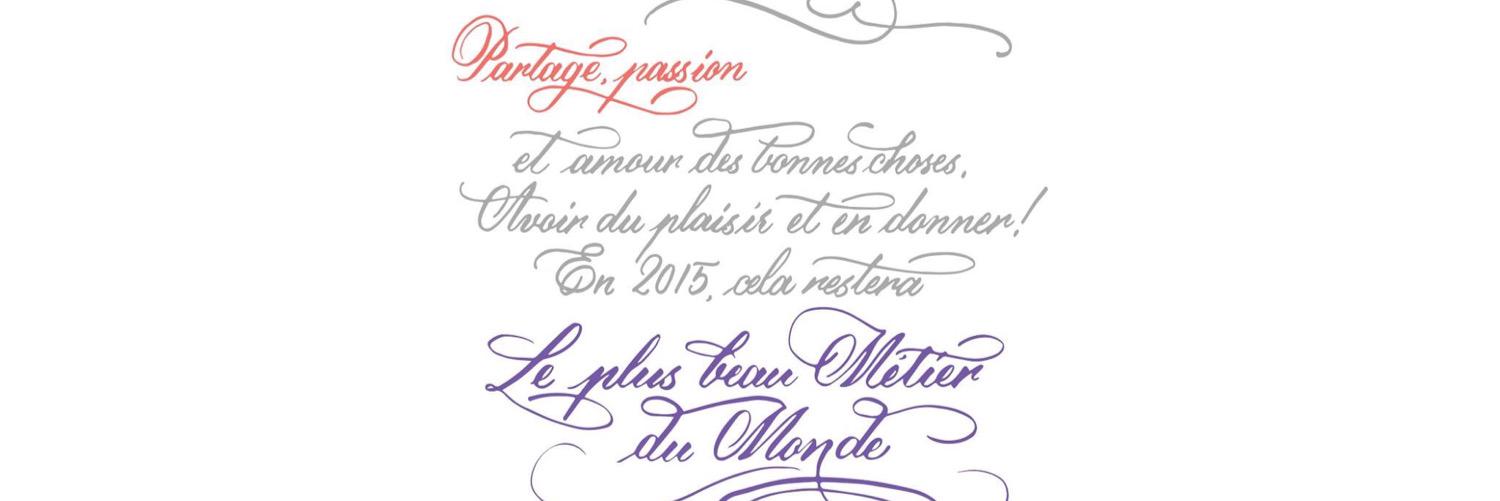 Partage, passion
et amour des bonnes choses,
Avoir du plaisir et en donner!
En 2015, cela restera
Le plus beau Métier
du Monde